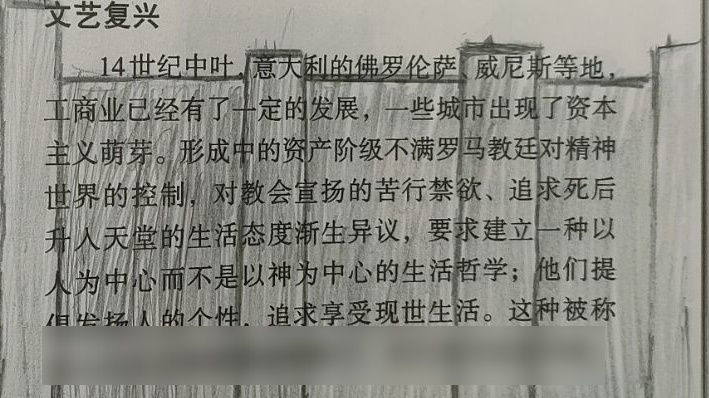 文艺复兴
14世纪中叶，意大利的佛罗伦萨、威尼斯等地，
工商业已经有了一定的发展，一些城市出现了资本
主义萌芽。形成中的资产阶级不满罗马教廷对精神
世界的控制，对教会宣扬的苦行禁欲、追求死后
升入天堂的生活态度渐生异议，要求建立一种以
人为中心而不是以神为中心的生活哲学；他们提
倡发扬人的个性，追求享受现世生活。这种被称